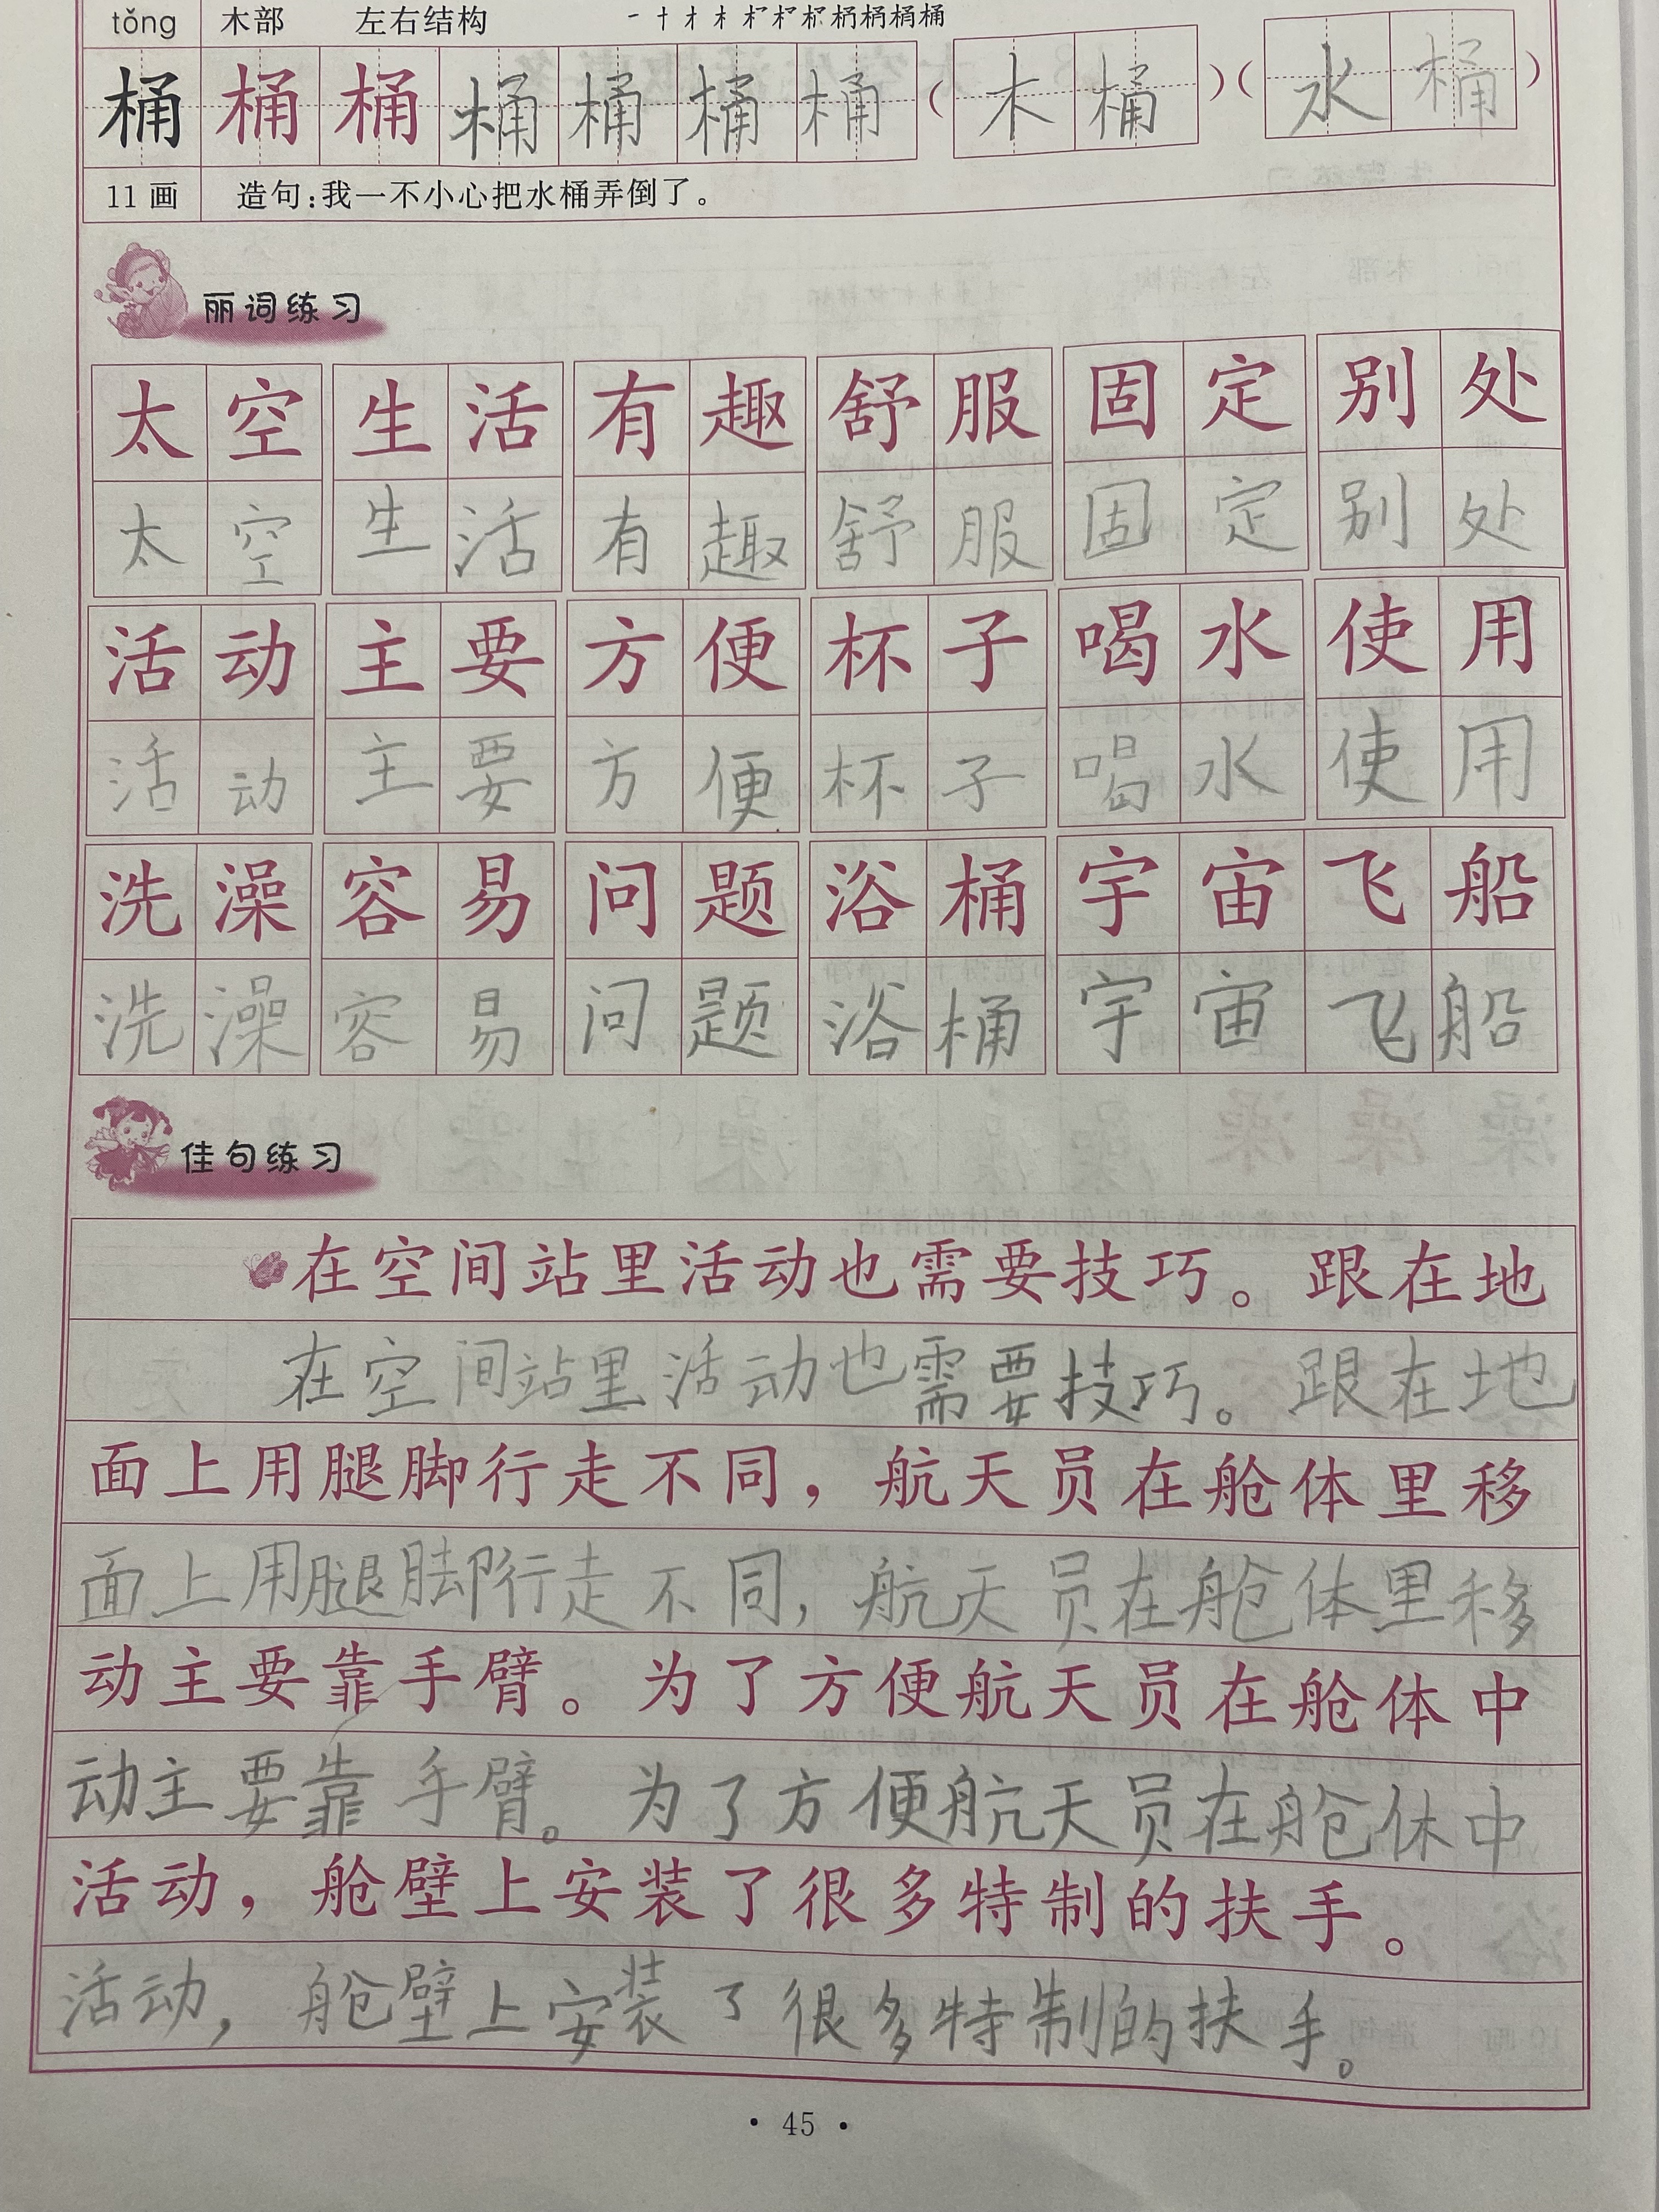 tǒng 木部 左右结构
桶 桶 桶 桶 桶 桶 桶 ( 木 桶 ) ( 水 桶 )
11 画 造句:我一不小心把水桶弄倒了。
丽词练习
太空 生活 有趣 舒服 固定 别处
太空 生活 有趣 舒服 固定 别处
活动 主要 方便 杯子 喝水 使用
活动 主要 方便 杯子 喝水 使用
洗澡 容易 问题 浴桶 宇宙飞船
洗澡 容易 问题 浴桶 宇宙飞船
佳句练习
在空间站里活动也需要技巧。跟在地
在空间站里活动也需要技巧。跟在地
面上用腿脚行走不同，航天员在舱体里移
面上用腿脚行走不同，航天员在舱体里移
动主要靠手臂。为了方便航天员在舱体中
动主要靠手臂。为了方便航天员在舱休中
活动，舱壁上安装了很多特制的扶手。
活动，舱壁上安装了很多特制的扶手。
· 45 ·